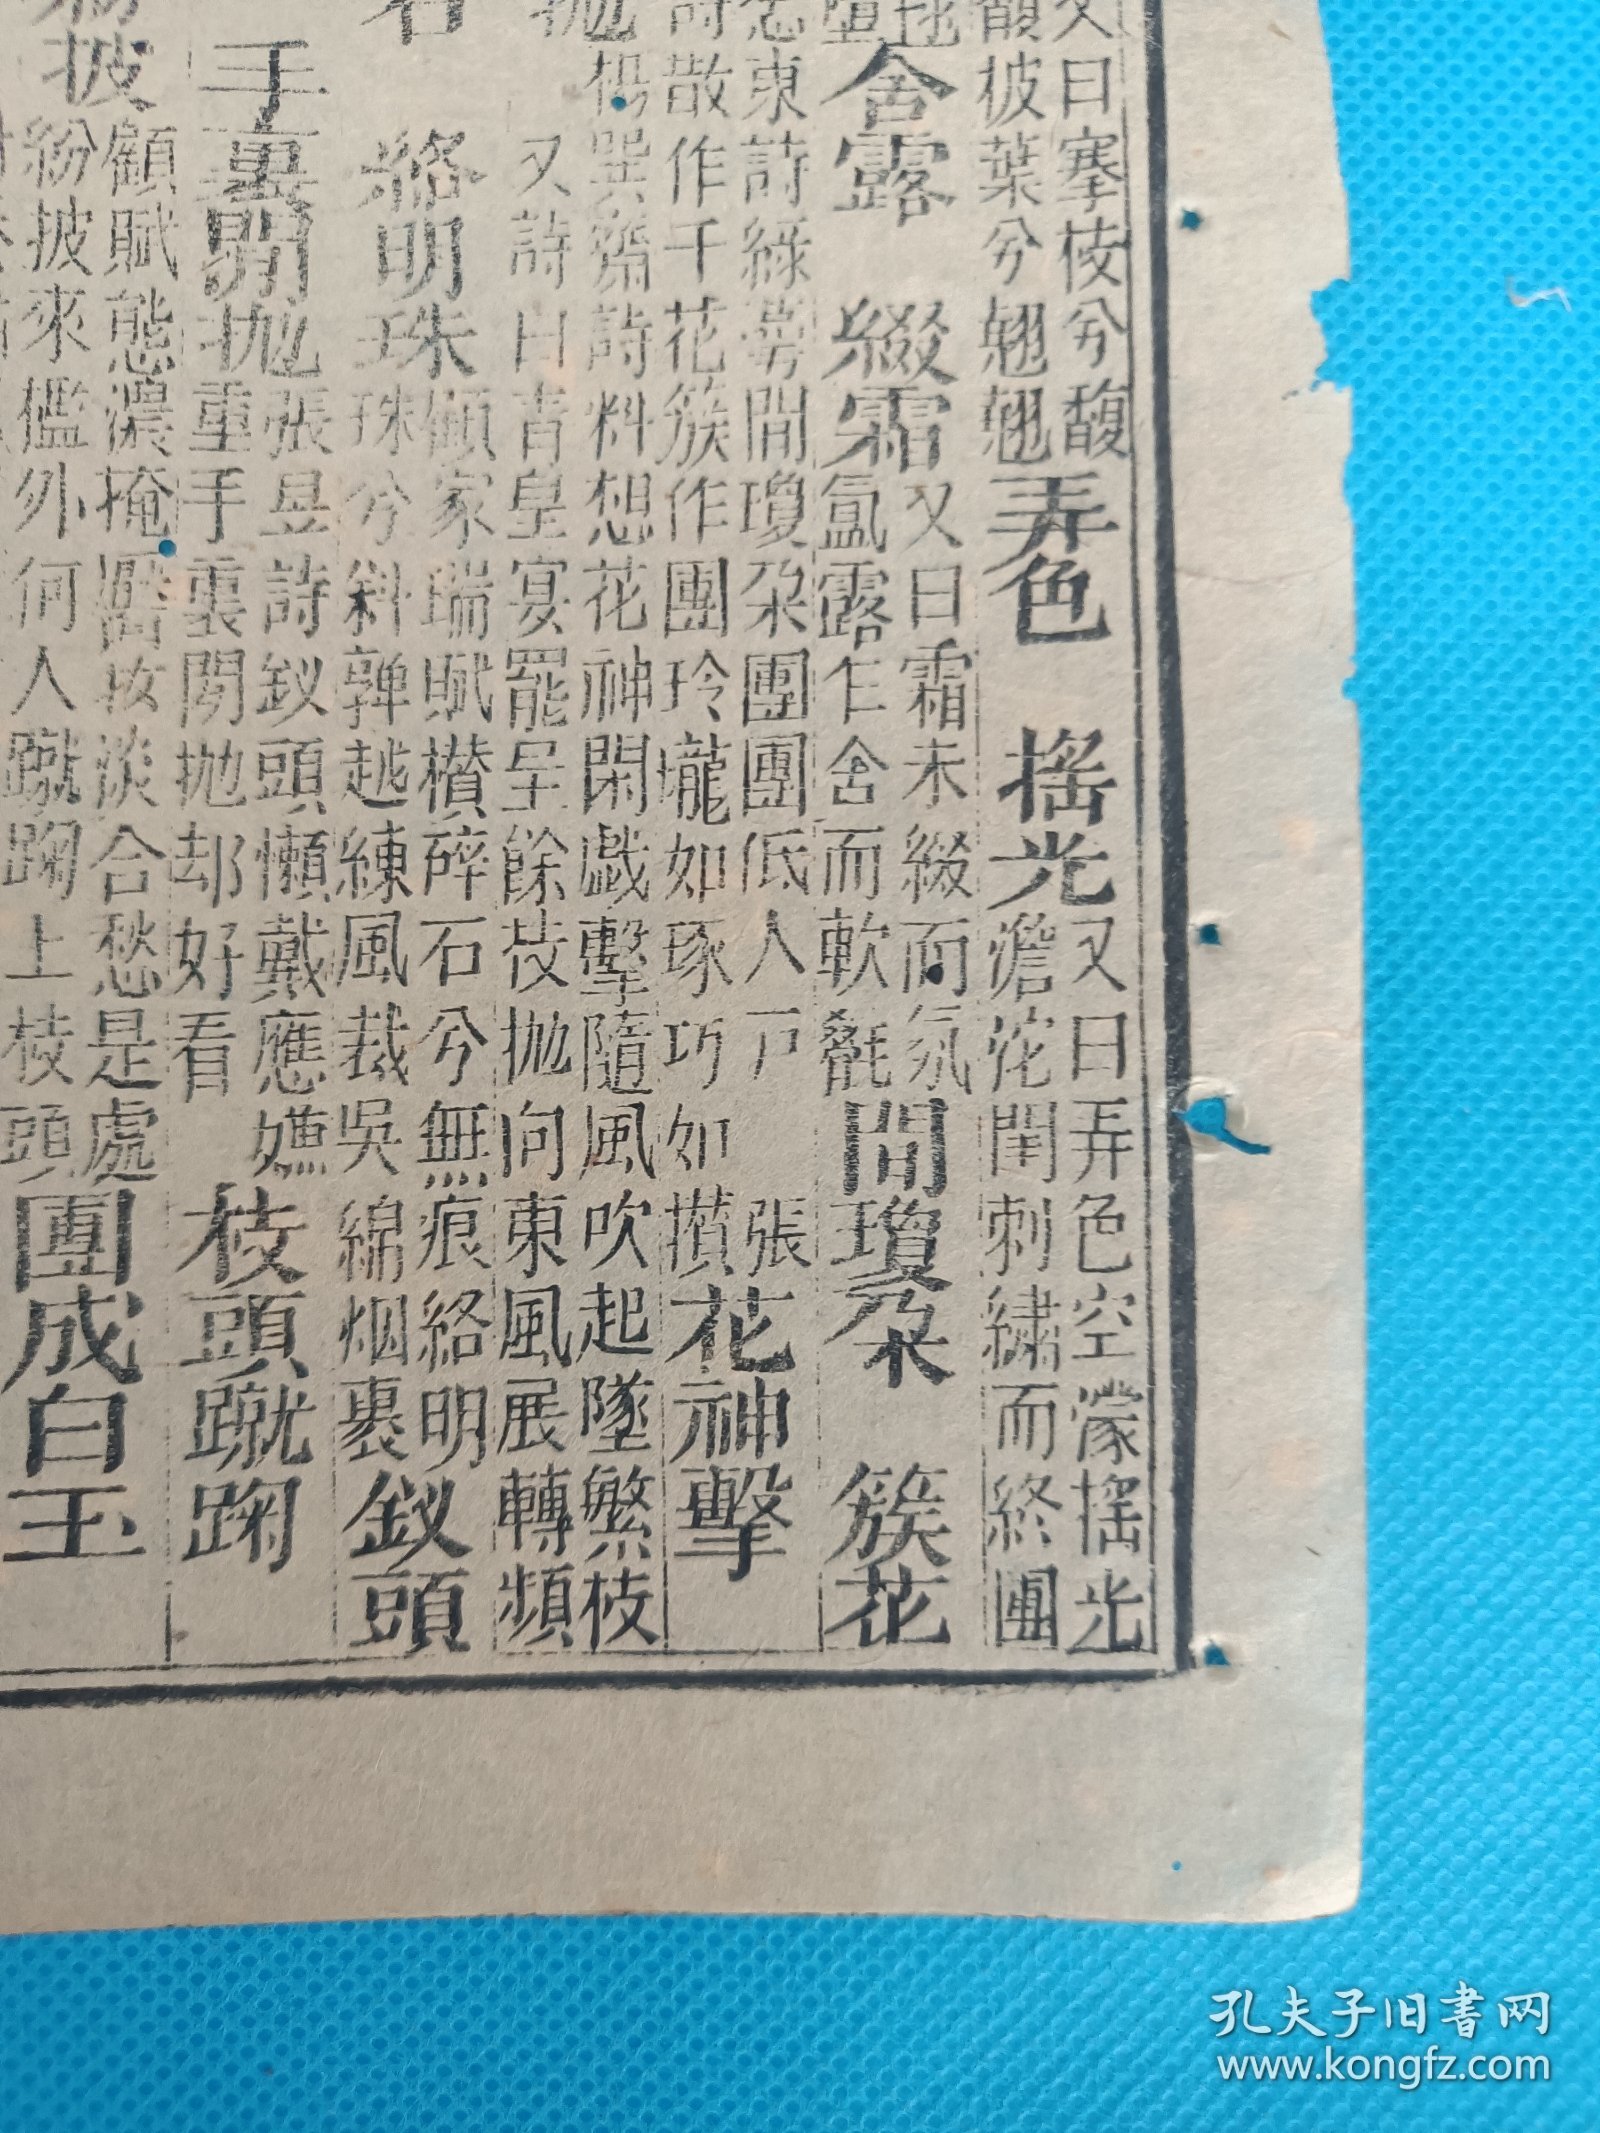 又曰搴枝兮馥
馥披葉兮翹翹
弄色　搖光
又曰弄色空濛搖光
澹沱閨刺繡而終團
含露　綴霜
又曰霜未綴而氛
氳露乍含而軟毾
間瓊朶　簇花
東詩綠蕚間瓊朶團團低人戸
詩散作千花簇作團玲瓏如琢巧如攅
張
花神擊
楊巽齋詩料想花神閑戯擊隨風吹起墜繁枝
又詩白青皇宴罷呈餘枝抛向東風展轉頻
絡明珠
顧家瑞賦櫕碎石兮無痕絡明
珠兮斜亸越練風裁吳綿烟裹
釵頭
手裏閒抛
張昱詩釵頭懶戴應嫌
重手裏閒抛却好看
枝頭蹴踘
顧賦態濃掩醫妝淡合愁是處
紛披來檻外何人蹴踘上枝頭
團成白玉
孔夫子旧書网
www.kongfz.com